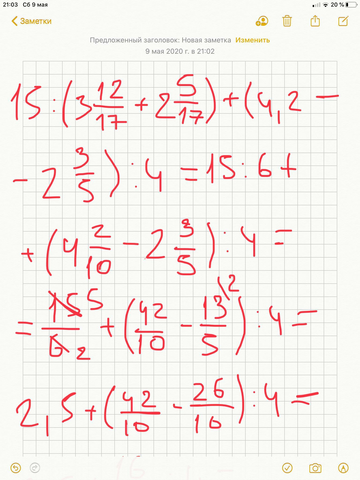 21:03 Сб 9 мая 20 %
Заметки
Предлагаемый заголовок: Новая заметка Изменить
9 мая 2020 г. в 21:02
15:(3 12/17 + 2 5/17) + (4,2 −
− 2 3/5) : 4 = 15 : 6 +
+ (4 2/10 − 2 3/5) : 4 =
= 15 5/6 2 + (42/10 − 13/5 \2) : 4 =
2,5 + (42/10 − 26/10) : 4 =